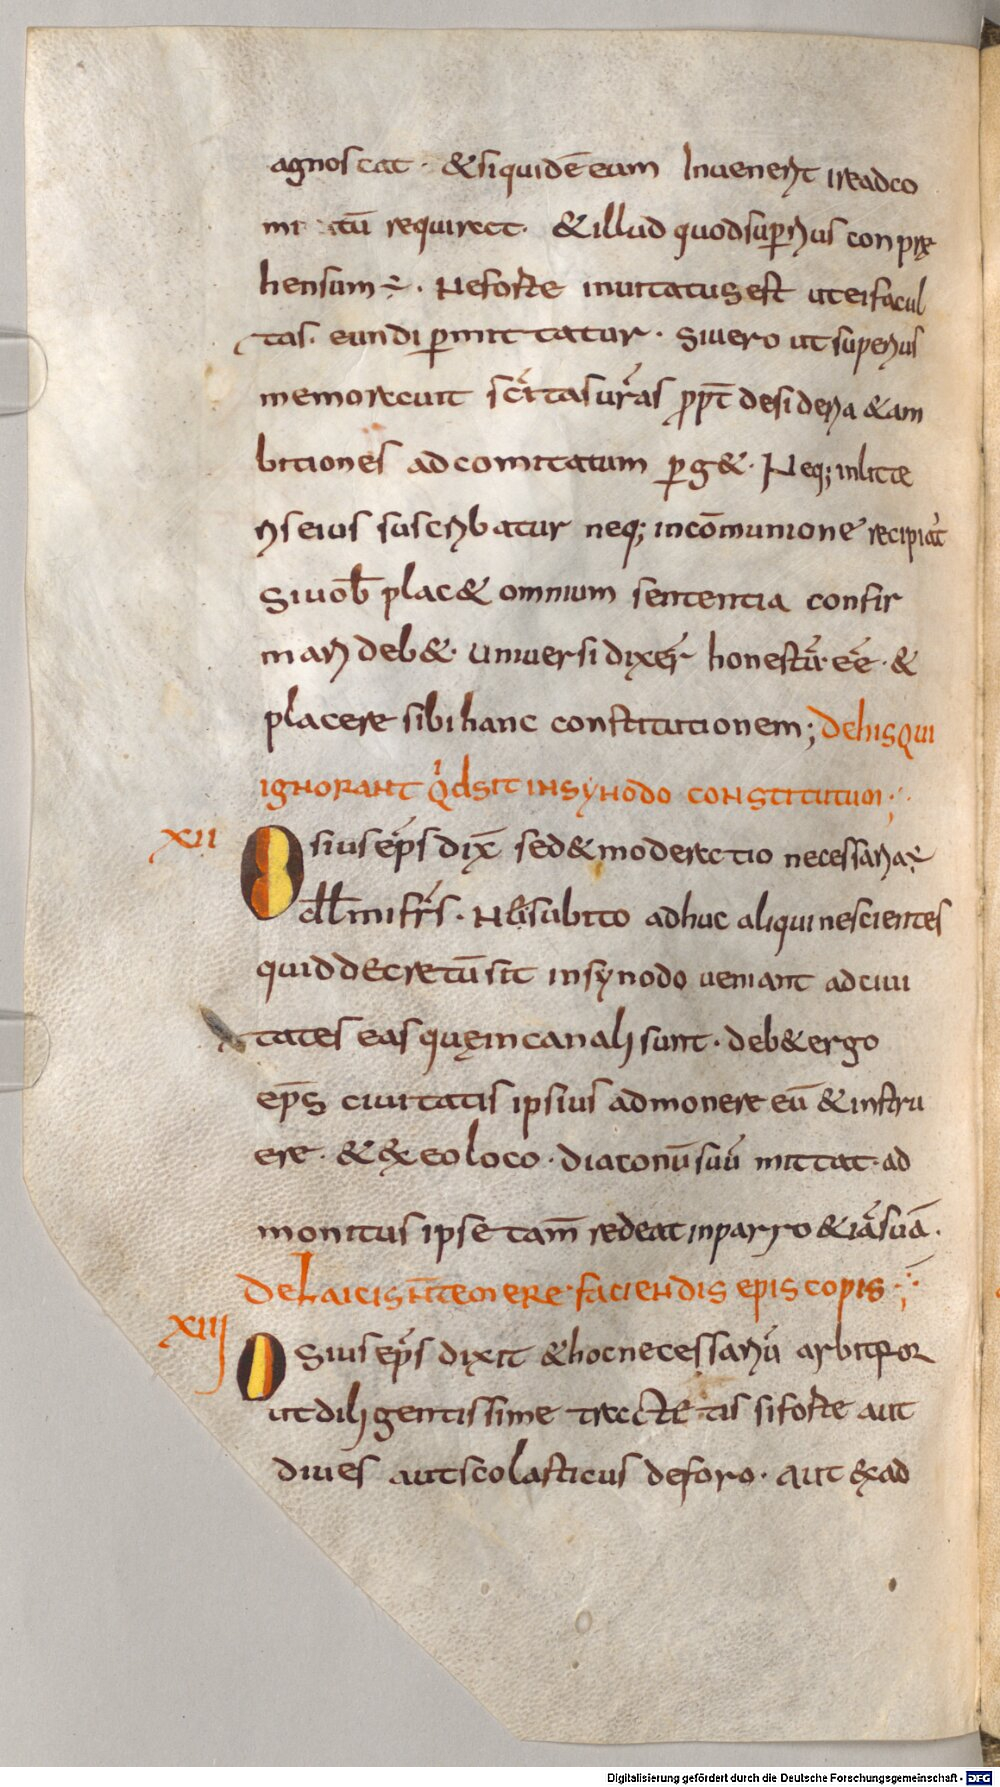 agnoscat · &siquidē eam Inuenerit ire adco
mi tatū requirat · &illud quod superius conprę
hensum ÷ · Ne forte inuitatus est ut ei facul
tas · eundi p̄mittatur · Si uero ut superius
memorauit scͥ̄tas uͬ̄as ꝓpt̄ desideria &am
bitiones ad comitatum ꝑg& · Neq; in litte
ris eius suscribatur neq; in cōmunione recipiat̄
Si uob̄ plac& omnium sententia confir
mari deb& · Uniuersi dixer̄ honestū · ēe · &
placere sibi hanc constitutionem ; De his qui
ignorant qͥd sit in synodo constitutum ;
XII Osius ep̄s dix̄ sed & moderatio necessaria ÷
dłł mi fr̄s · Nł subito adhuc aliqui nescientes
quid decretū sit in synodo ueniant ad ciui
tates eas quę in canali sunt · deb& ergo
ep̄s ciuitatis ipsius admonere eū & instru
ere · & & ex eo loco · diaconū suū mittat · ad
monitus ipse tam̄ redeat in parro & iā suā ·
De Laicis n̄ temere · faciendis episcopis ·;
XIII Osius ep̄s dixit & hoc necessariū arbitror
ut diligentissime tractetis si forte aut
diues aut scolasticus de foro · aut ex ad
Digitalisierung gefördert durch die Deutsche Forschungsgemeinschaft - DFG